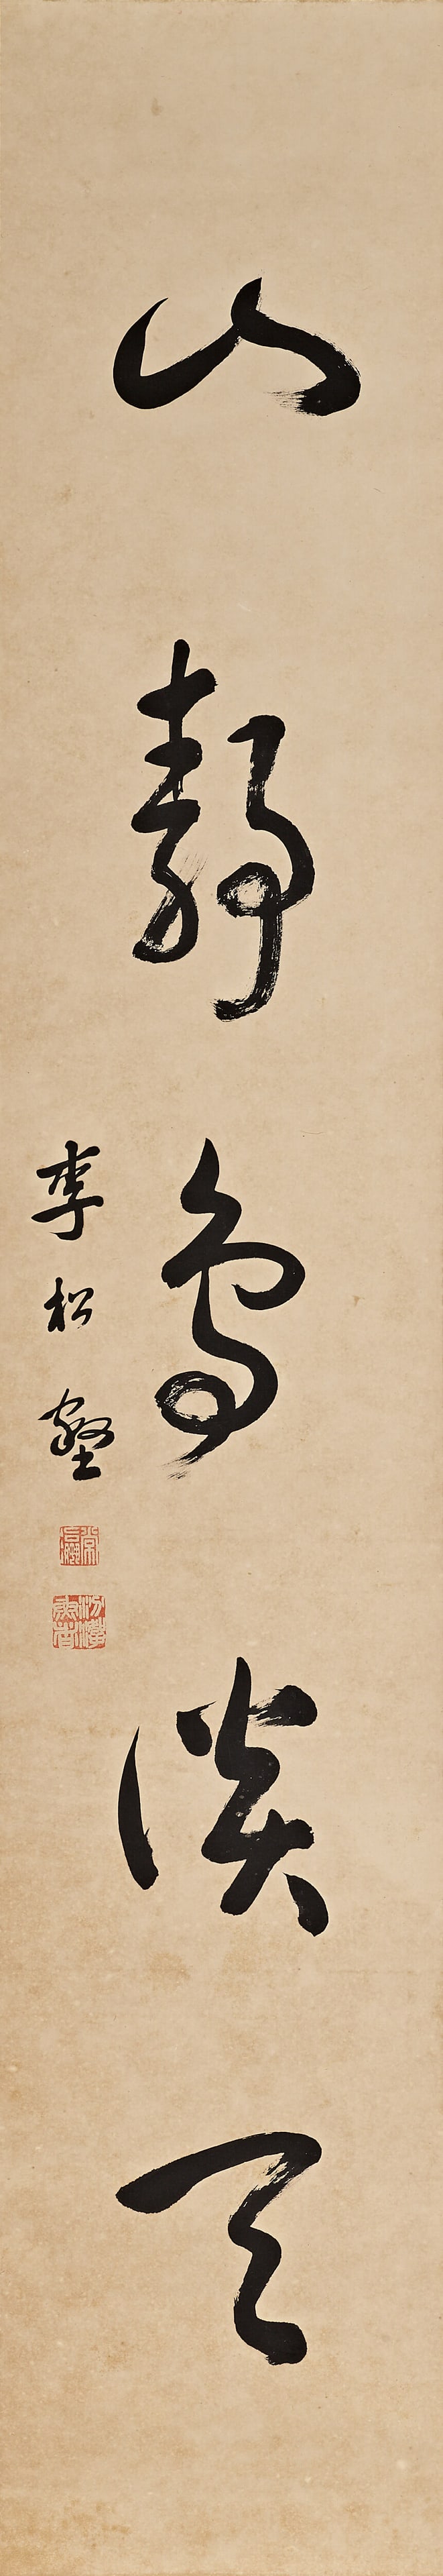 山靜鳥談天
李松壑